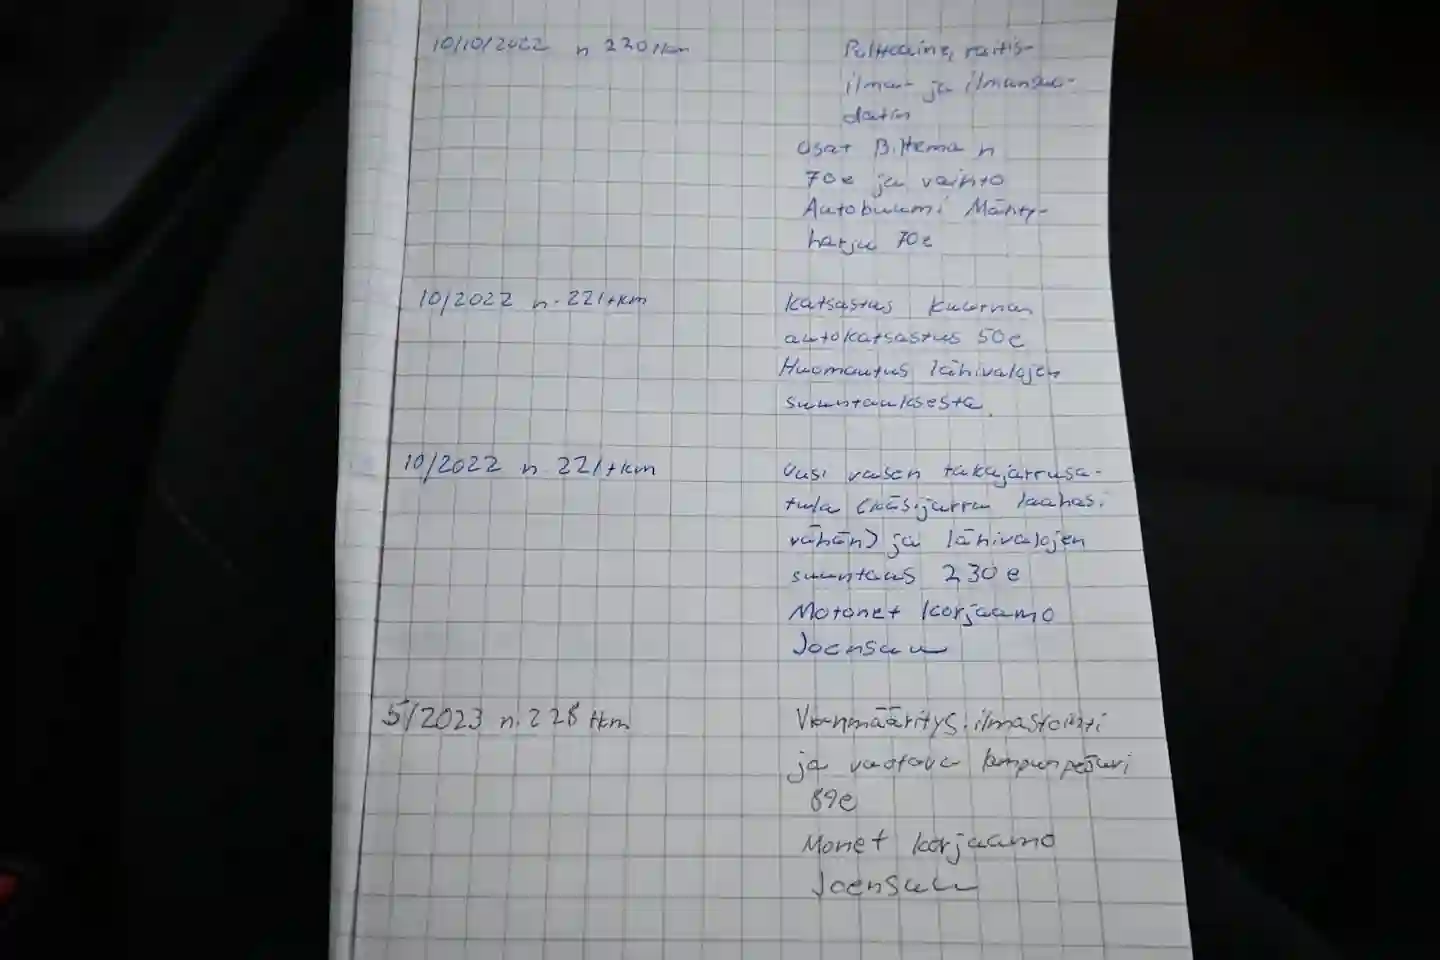 10/10/2022 n 220 tkm
Polttoaine, raitis-
ilma- ja ilmansuo-
datin
osat Biltema n
70e ja vaihto
Autobuumi Mänty-
harju 70e
10/2022 n. 221tkm
Katsastus Kuurnan
autokatsastus 50e
Huomautus lähivalojen
suuntauksesta.
10/2022 n 221tkm
Uusi vasen takajarrusa-
tula (käsijarru laahasi
vähän) ja lähivalojen
suuntaus 230e
Motonet korjaamo
Joensuu
5/2023 n. 228 tkm
Vianmääritys: ilmastointi
ja vuotava lampunpesuri
89e
Monet korjaamo
Joensuu